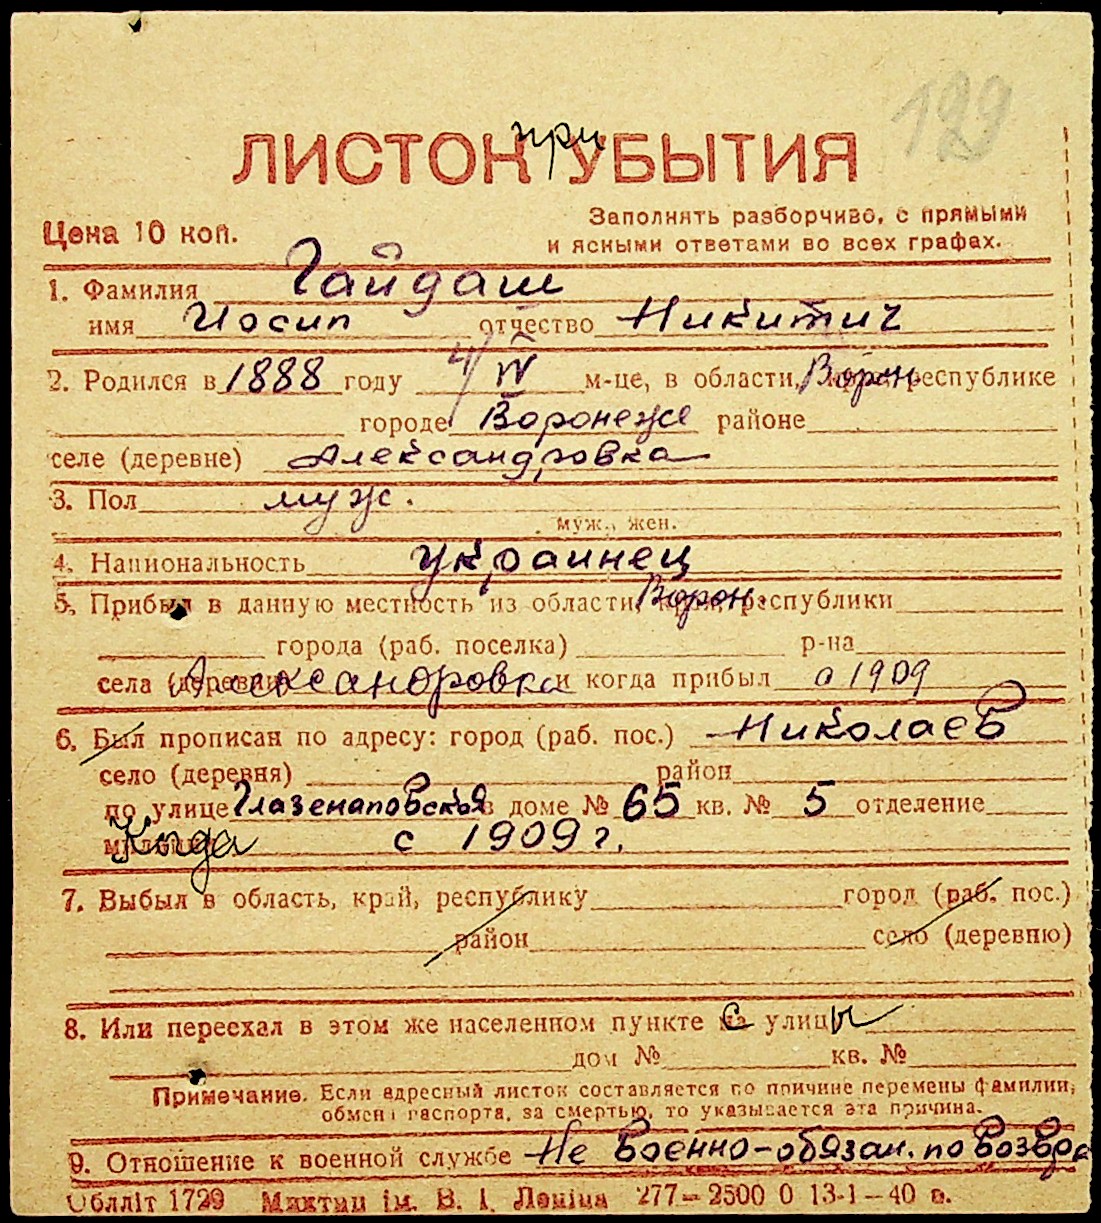 129
ЛИСТОК при УБЫТИЯ
Цена 10 коп.
Заполнять разборчиво, с прямыми
и ясными ответами во всех графах.
1. Фамилия Гайдаш
имя Иосип отчество Никитич
2. Родился в 1888 году 4/IV м-це, в области, Ворон. республике
городе Воронеже районе
селе (деревне) Александровка
3. Пол муж.
муж., жен.
4. Национальность украинец
5. Прибыл в данную местность из области, Ворон. республики
города (раб. поселка) р-на
села (деревни) Александровка и когда прибыл с 1909
6. Был прописан по адресу: город (раб. пос.) Николаев
село (деревня) район
по улице Глазенаповской в доме № 65 кв. № 5 отделение
милиции Когда с 1909 г.
7. Выбыл в область, край, республику город (раб. пос.)
район село (деревню)
8. Или переехал в этом же населенном пункте с улицы
дом № кв. №
Примечание. Если адресный листок составляется по причине перемены фамилии,
обмена паспорта, за смертью, то указывается эта причина.
9. Отношение к военной службе Не военно-обязан. по возвра
Облліт 1729 ім. В. І. Леніна 277—2500 0 13-1—40 в.